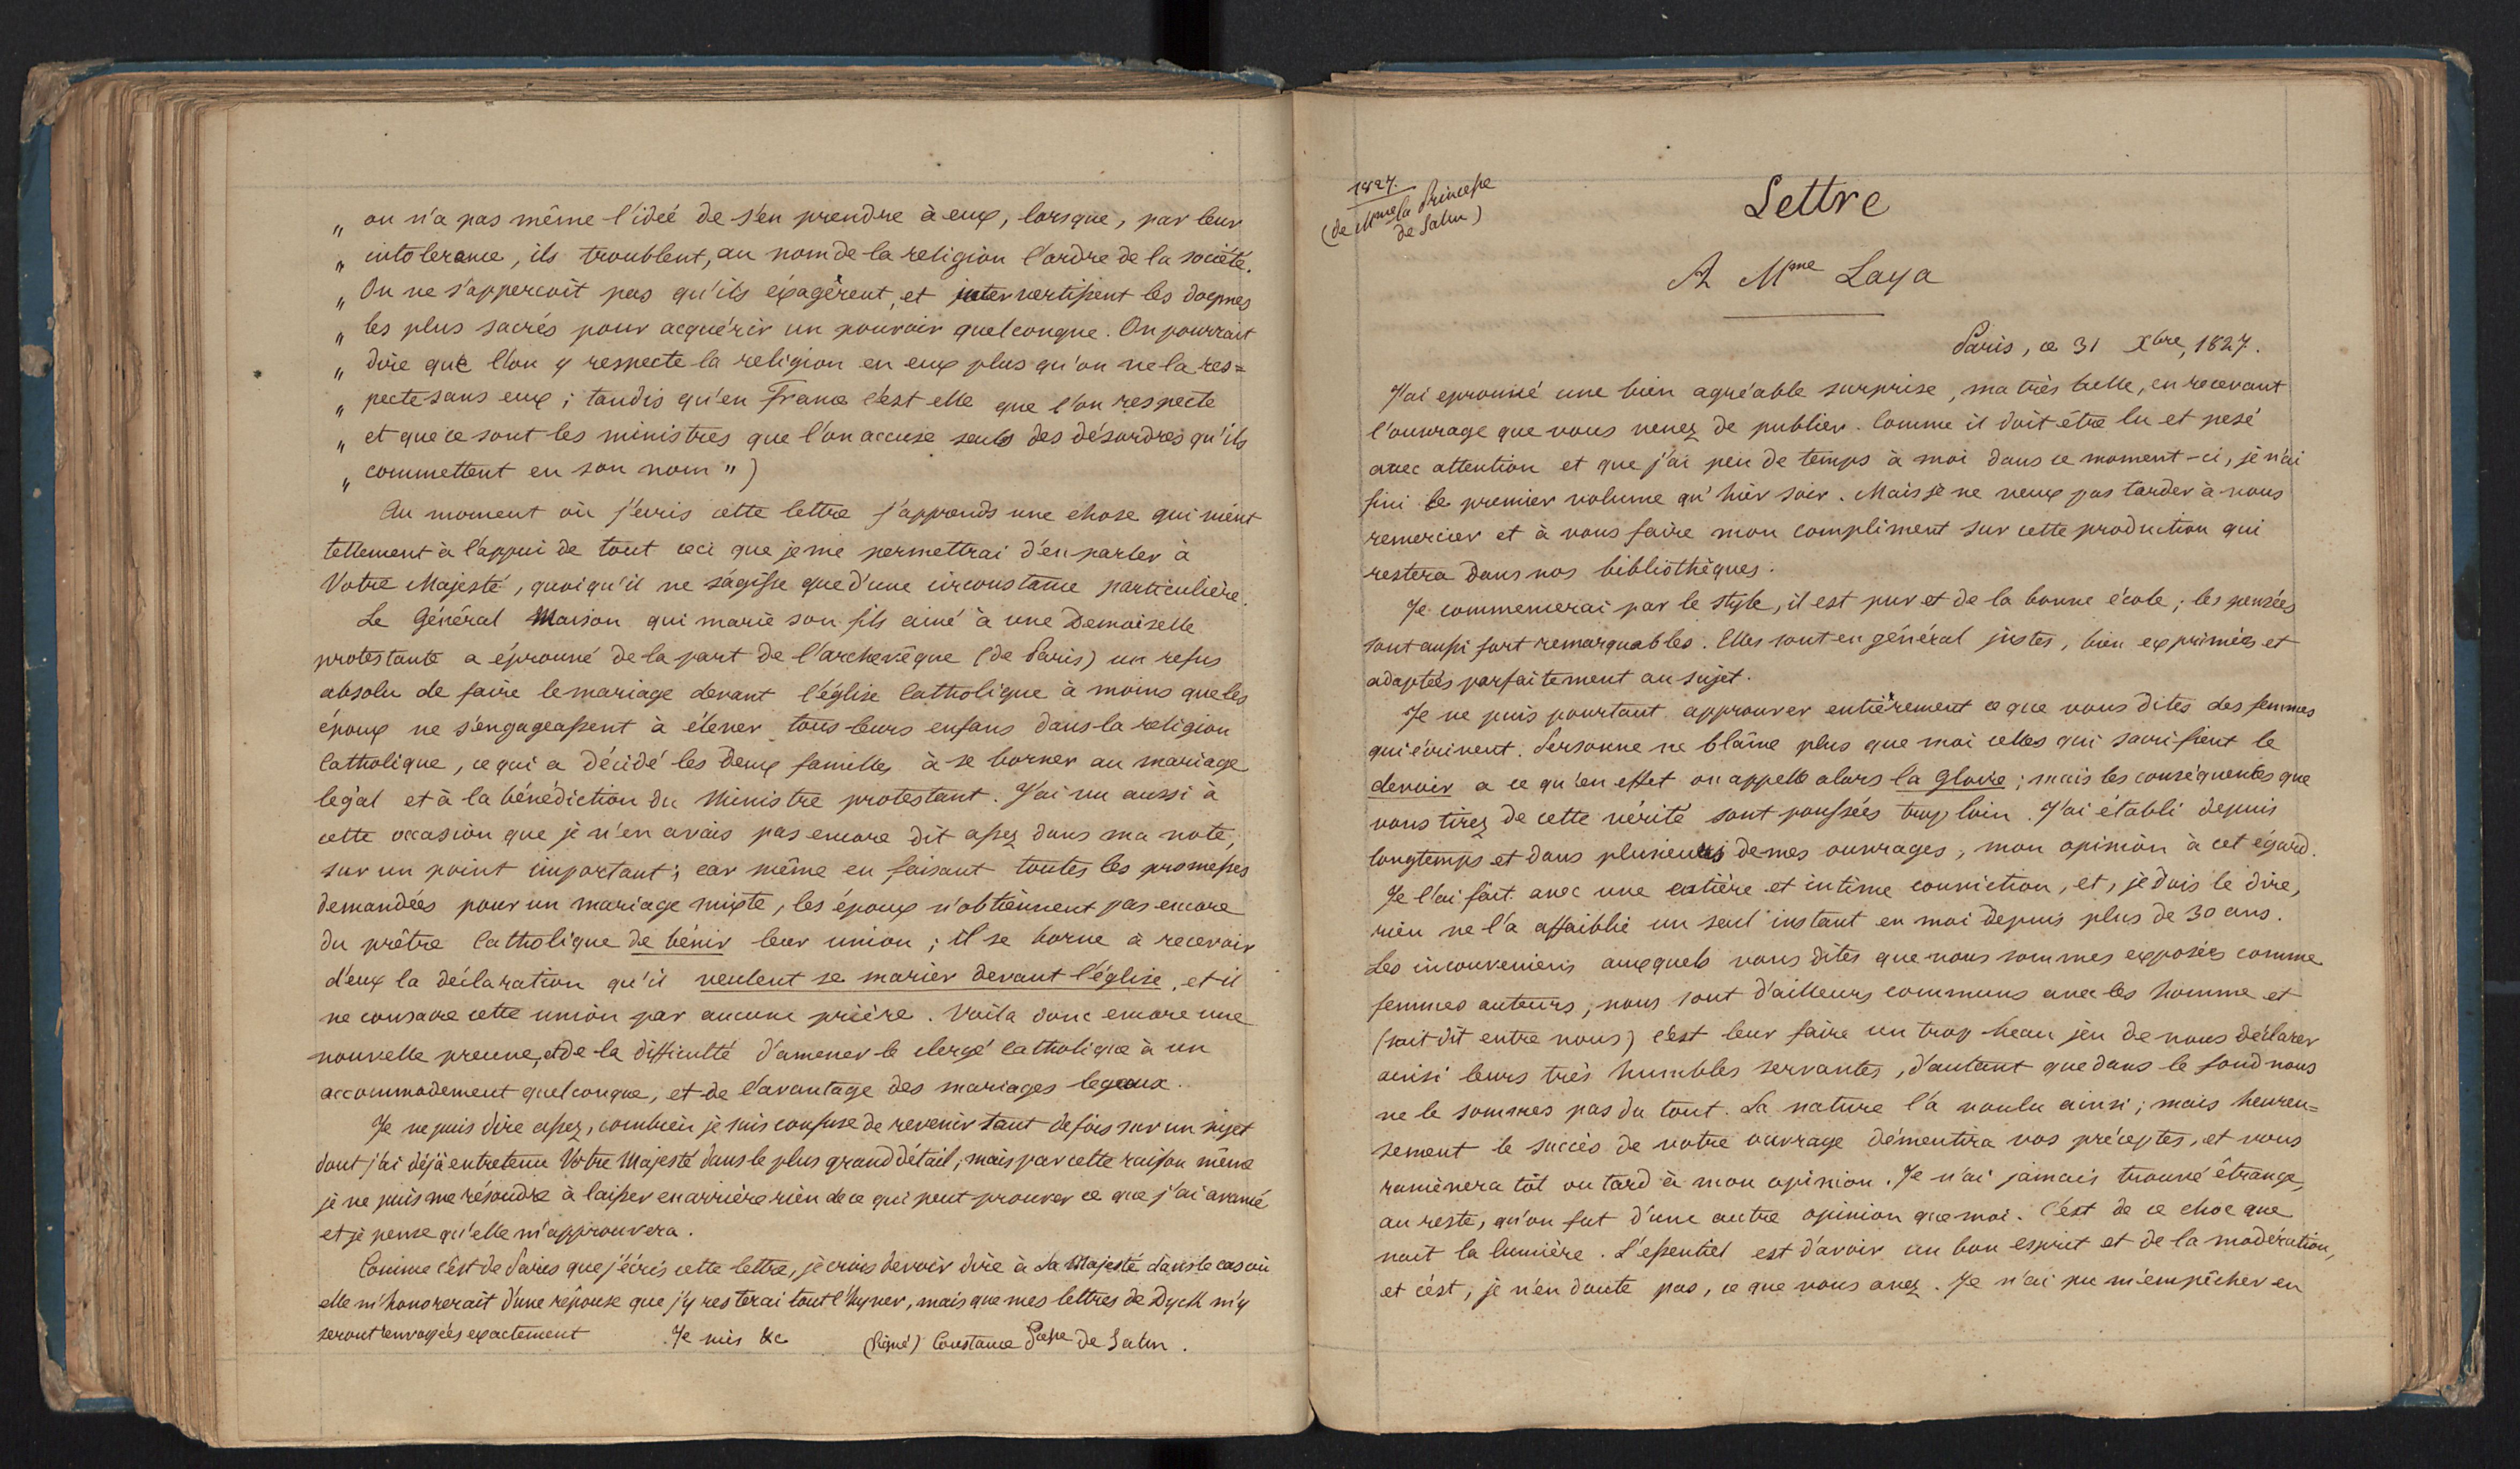 „ on n'a pas même l'idée de s'en prendre à eux, lorsque, par leur
„ intolerance, ils troublent, au nom de la religion l'ordre de la société.
„ On ne s'appercoit pas qu'ils éxagèrent, et intervertissent les dogmes
„ les plus sacrés pour acquérir un pouvoir quelconque. On pourrait
„ dire que l'on y respecte la religion en eux plus qu'on ne la res=
„ pecte sans eux ; tandis qu'en France c'est elle que l'on respecte
„ et que ce sont les ministres que l'on accuse seuls des désordres qu'ils
„ commettent en son nom ")
Au moment où j'écris cette lettre j'apprends une chose qui vient
tellement à l'appui de tout ceci que je me permettrai d'en parler à
Votre Majesté, quoiqu'il ne s'agisse que d'une circonstance particulière.
Le Général Maison qui marie son fils ainé à une Demoiselle
protestante a éprouvé de la part de l'archevêque (de Paris) un refus
absolu de faire le mariage devant l'église Catholique à moins que les
époux ne s'engageassent à élever tous leurs enfans dans la religion
Catholique, ce qui a décidé les deux familles à se borner au mariage
légal et à la bénédiction du Ministre protestant. J'ai vu aussi à
cette occasion que je n'en avais pas encore dit assez dans ma note,
sur un point important ; car même en faisant toutes les promesses
demandées pour un mariage mixte, les époux n'obtiennent pas encore
du prêtre Catholique de bénir leur union ; il se borne à recevoir
d'eux la déclaration qu'il veulent se marier devant l'église, et il
ne consacre cette union par aucune prière. Voilà donc encore une
nouvelle preuve, et de la difficulté d'amener le clergé Catholique à un
accommodement quelconque, et de l'avantage des mariages legaux.
Je ne puis dire assez, combien je suis confuse de revenir tant de fois sur un sujet
dont j'ai déjà entretenu Votre Majesté dans le plus grand détail ; mais par cette raison même
je ne puis me résoudre à laisser en arrière rien de ce qui peut prouver ce que j'ai avancé
et je pense qu'elle m'approuvera.
Comme c'est de Paris que j'écris cette lettre, je crois devoir dire à Sa Majesté dans le cas où
elle m'honorerait d'une réponse que j'y resterai tout l'hyver, mais que mes lettres de Dyck m'y
seront envoyées exactement Je suis &c (Signé) Constance Psse de Salm.
1827.
(de Mme la Princesse
de Salm)
Lettre
A Mme Laya
Paris, ce 31 Xbre, 1827.
J'ai eprouvé une bien agréable surprise, ma très belle, en recevant
l'ouvrage que vous venez de publier. Comme il doit être lu et pesé
avec attention et que j'ai peu de temps à moi dans ce moment-ci, je n'ai
fini le premier volume qu'hier soir. Mais je ne veux pas tarder à vous
remercier et à vous faire mon compliment sur cette production qui
restera dans nos bibliothèques.
Je commencerai par le style, il est pur et de la bonne école ; les pensées
sont aussi fort remarquables. Elles sont en général justes, bien exprimées et
adaptées parfaitement au sujet.
Je ne puis pourtant approuver entièrement ce que vous dites des femmes
qui écrivent. Personne ne blâme plus que moi celles qui sacrifient le
devoir a ce qu'en effet on appelle alors la gloire ; mais les conséquentes que
vous tirez de cette vérité sont poussées trop loin. J'ai établi depuis
longtemps et dans plusieurs de mes ouvrages, mon opinion à cet égard.
Je l'ai fait avec une entière et intime conviction, et, je dois le dire,
rien ne l'a affaiblie un seul instant en moi depuis plus de 30 ans.
Les inconveniens auxquels vous dites que nous sommes exposées comme
femmes auteurs, nous sont d'ailleurs communs avec les homme et
(soit dit entre nous) c'est leur faire un trop beau jeu de nous déclarer
ainsi leurs très humbles servantes, d'autant que dans le fond nous
ne le sommes pas du tout. La nature l'a voulu ainsi ; mais heureu=
sement le succès de votre ouvrage démentira vos préceptes, et vous
ramènera tôt ou tard à mon opinion. Je n'ai jamais trouvé étrange,
au reste, qu'on fut d'une autre opinion que moi. C'est de ce choc que
nait la lumière. L'essentiel est d'avoir un bon esprit et de la modération,
et c'est, je n'en doute pas, ce que vous avez. Je n'ai pu m'empêcher en